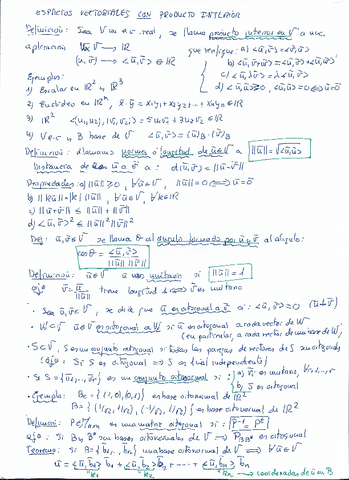 ESPACIOS VECTORIALES CON PRODUCTO INTERIOR
Definición: Sea V un e.v. real, se llama producto interior en V a una
aplicación V x V → ℝ que verifique: a) <ū,v̄> = <v̄,ū>
(ū,v̄) → <ū,v̄> ∈ ℝ
c) <λū,v̄> = λ<ū,v̄>
d) <ū,ū> ≥ 0, <ū,ū> = 0 ⟺ ū = 0̄
Ejemplos:
1) Escalar en ℝ² y ℝ³
2) Euclídeo en ℝⁿ, x̄·ȳ = x₁y₁ + x₂y₂ + ... + xₙyₙ ∈ ℝ
3) ℝ² <(u₁,u₂),(v₁,v₂)> = 5u₁v₁ + 3u₂v₂ ∈ ℝ
4) V e.v. y B base de V <ū,v̄> = (ū)B · (v̄)B
Definición: llamamos norma o longitud de ū ∈ V a ||ū|| = √<ū,ū>
Distancia de ū a v̄ a: d(ū,v̄) = ||ū-v̄||
Propiedades: a) ||ū|| ≥ 0, ∀ū∈V, ||ū|| = 0 ⟺ ū = 0̄
b) ||kū|| = |k| ||ū||, ∀ū∈V, ∀k∈ℝ
c) ||ū+v̄|| ≤ ||ū|| + ||v̄||
d) <ū,v̄>² ≤ ||ū||² ||v̄||²
Def: ū,v̄∈V se llama θ al ángulo formado por ū y v̄ al ángulo:
cosθ = <ū,v̄> / ||ū|| ||v̄||
Definición: ū∈V es unitario si ||ū|| = 1
ū / ||ū|| tiene longitud 1 ⟺ es unitario
· Sea ū,v̄∈V, se dice que ū es ortogonal a v̄ si: <ū,v̄> = 0 (ū⊥v̄)
· W⊂V ū∈V es ortogonal a W si ū es ortogonal a cada vector de W
(en particular, a cada vector de una base de W)
· S⊂V, S es un conjunto ortogonal si todas las parejas de vectores de S son ortogonales
Si S es ortogonal ⟹ S es l.ineal independiente)
· Si S = {ū₁,...,ūₙ} es un conjunto ortonormal si: a) ūᵢ es unitario, ∀i=1,...,n
b) S es ortogonal
· Ejemplo: Bc = {(1,0),(0,1)} es base ortonormal de ℝ²
B = {(1/√2, 1/√2), (-1/√2, 1/√2)} es base ortonormal de ℝ²
Definición: P es una matriz ortogonal si: P⁻¹ = Pᵗ
Si B y B* son bases ortonormales de V ⟹ P es ortogonal
Teorema: Si B = {b̄₁,...,b̄ₙ} una base ortonormal de V ⟹ ∀ū∈V
ū = <ū,b̄₁> b̄₁ + <ū,b̄₂> b̄₂ + ... + <ū,b̄ₙ> b̄ₙ
→ coordenadas de ū en B